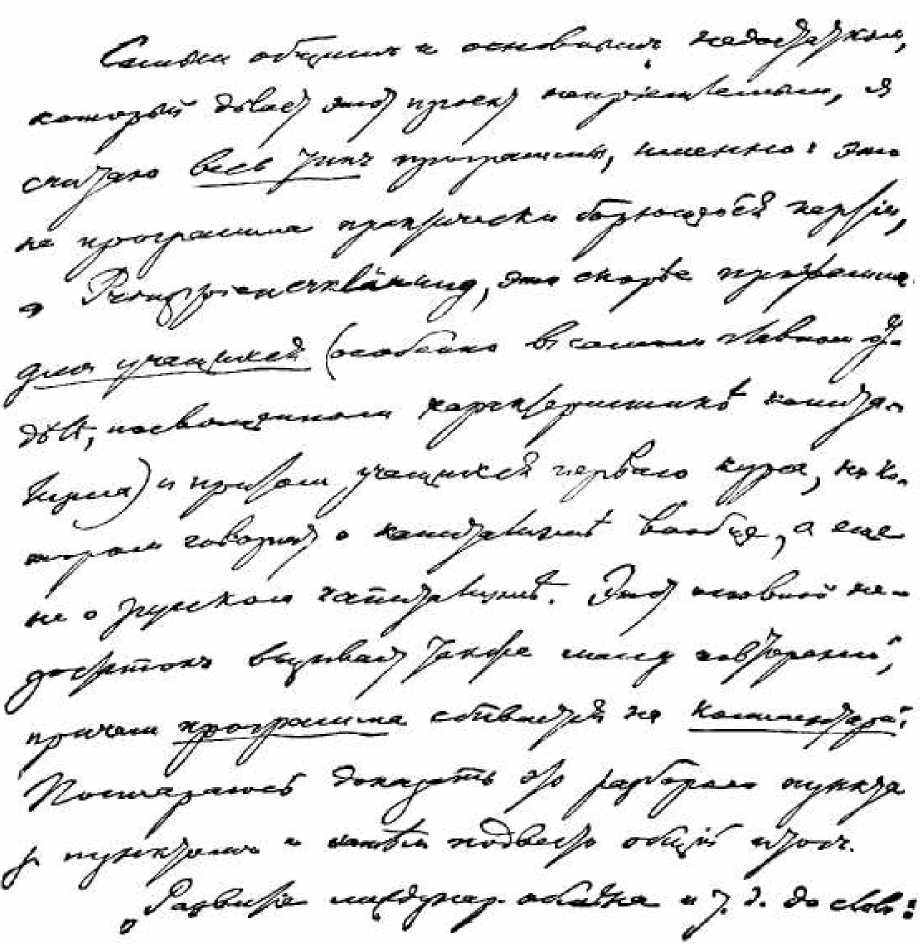 Самым общим и основным недостатком,
который дѣлает этот проект неприемлемым, я
считаю весь тип программы, именно: это
не программа практически борющейся партіи,
а Prinzipienerklärung, это скорѣе программа
для учащихся (особенно в самом главном от-
дѣлѣ, посвященном характеристикѣ капита-
лизма) и притом учащихся первого курса, на ко-
тором говорят о капитализмѣ вообще, а еще
не о русском капитализмѣ. Этот основной не-
достаток вызывает также массу повторений,
причем программа сбивается на комментарий.
Постараюсь доказать это разбором пункта
за пунктом и затѣм подвести общій итог.
„Развитіе междунар. обмѣна" и т. д. до слов: